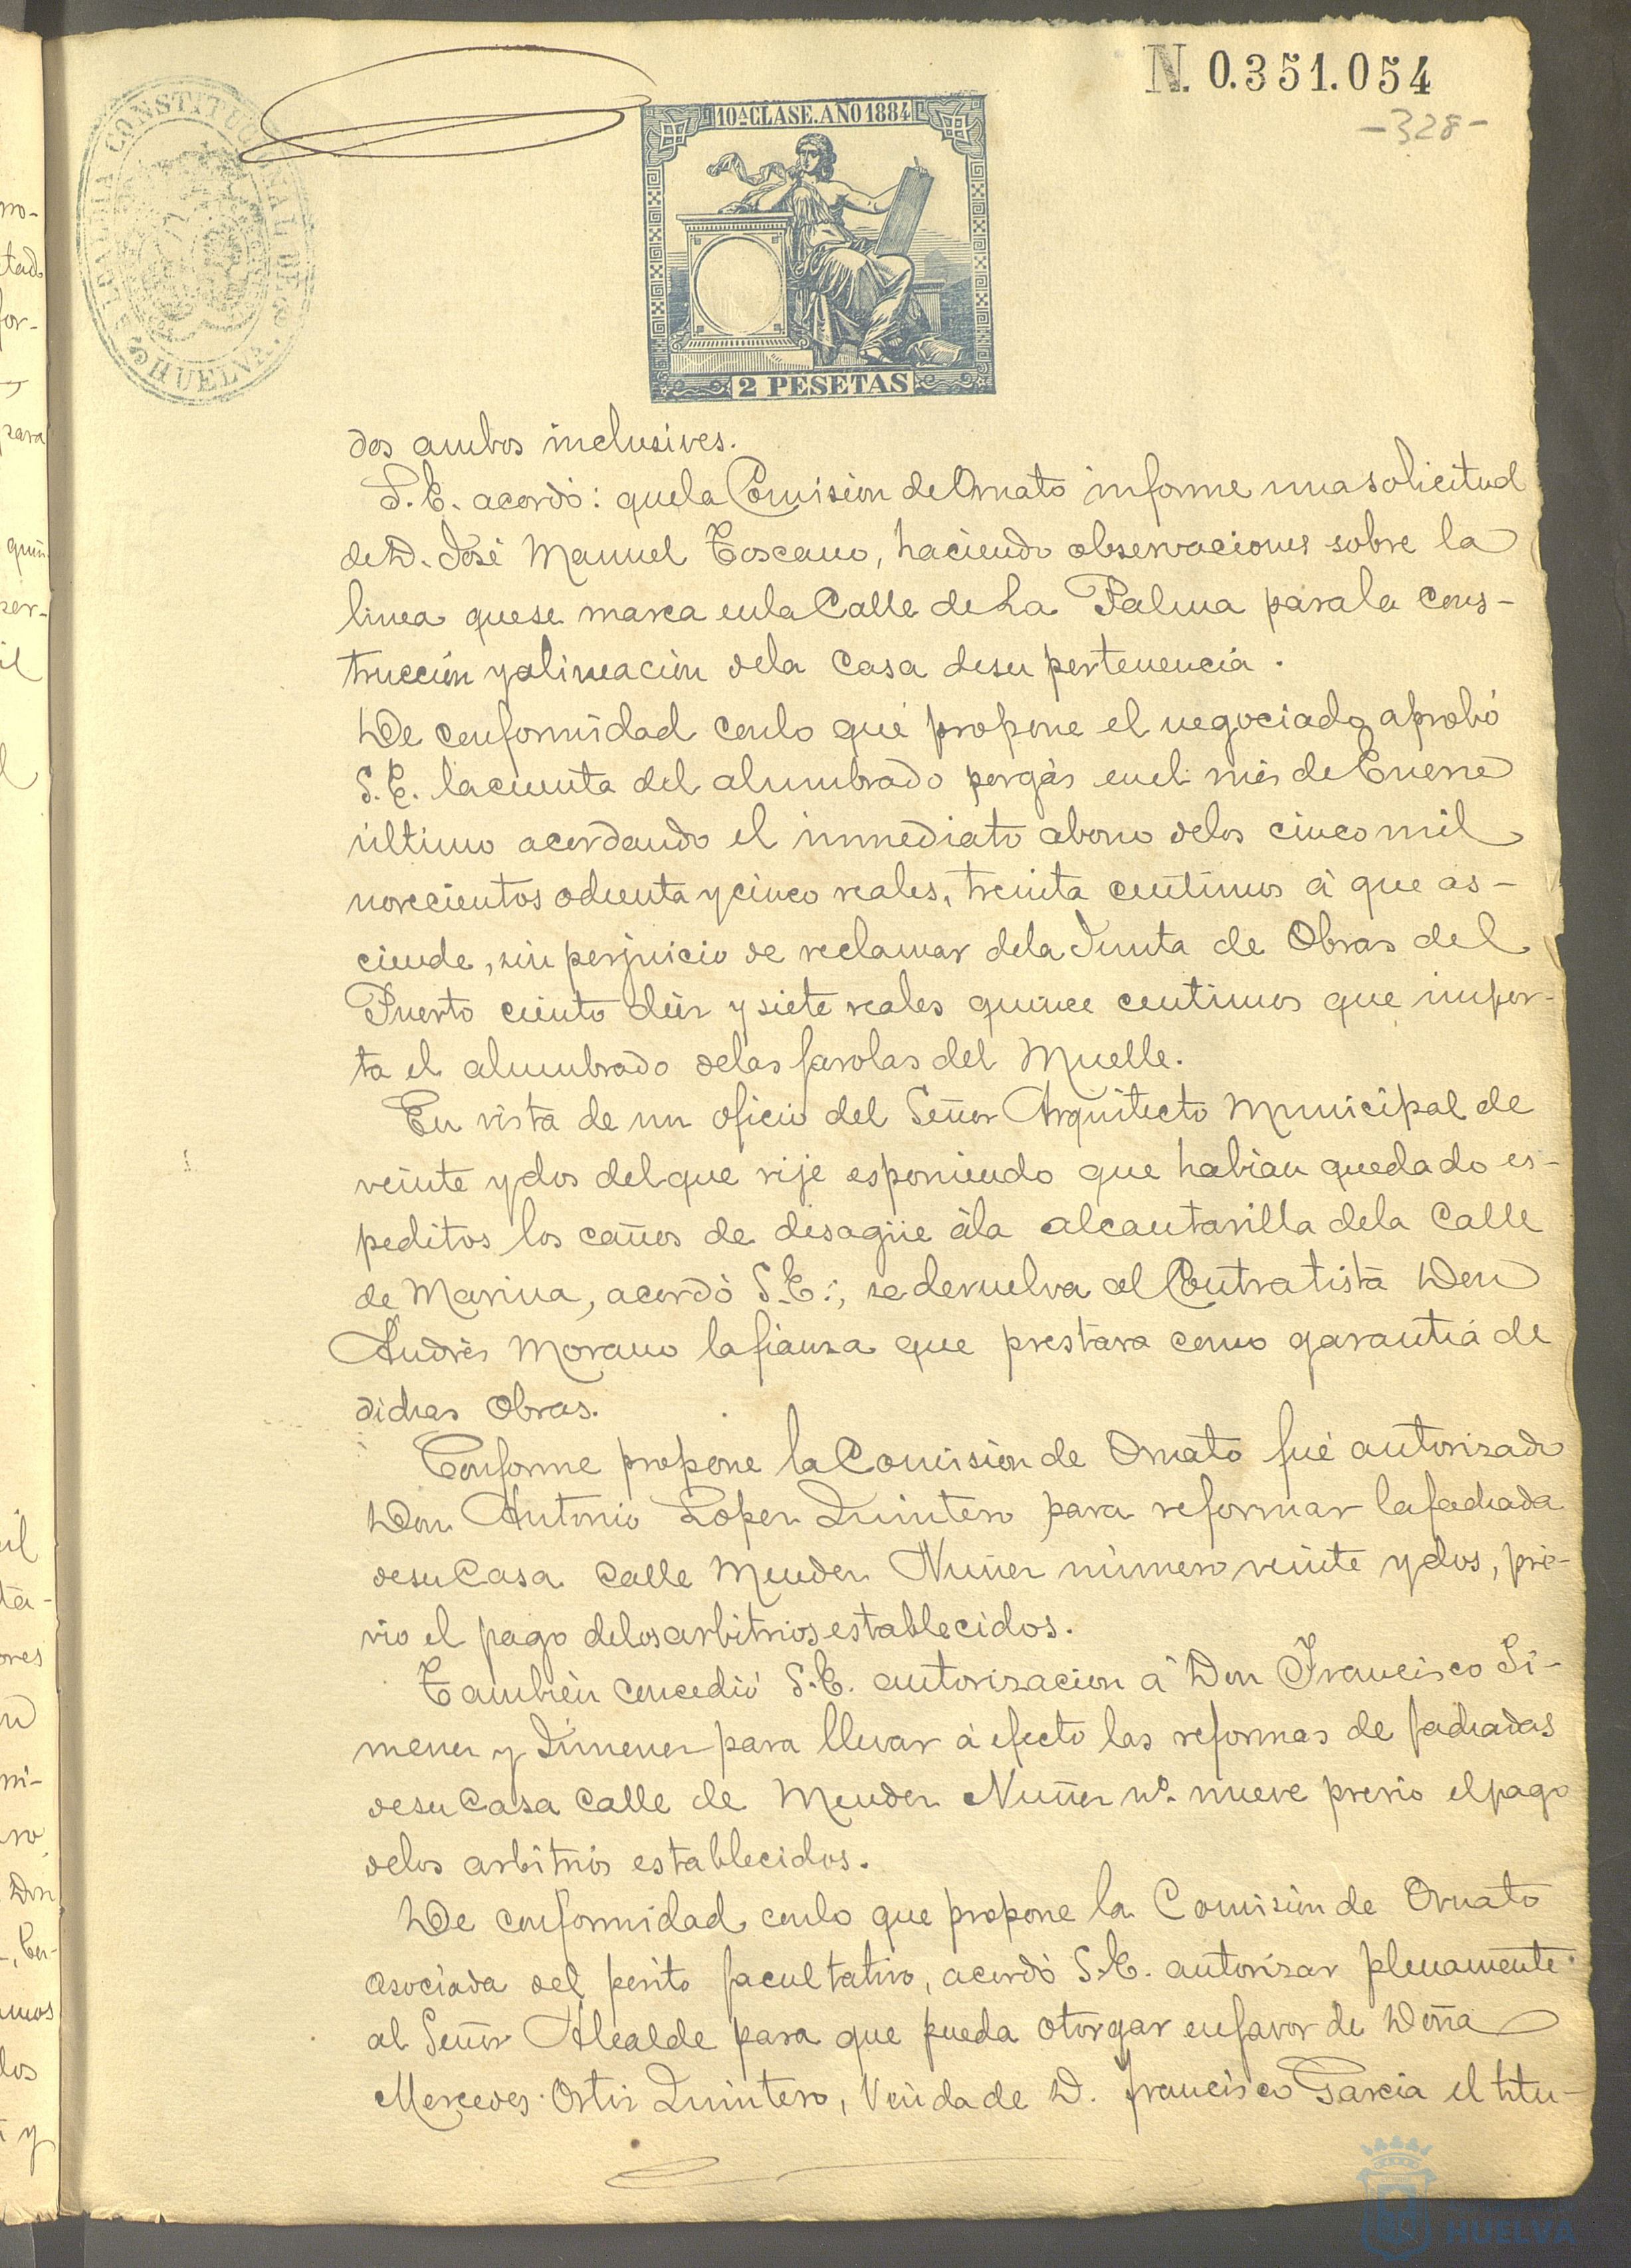 N. 0.351.054
-328-
ALCALDIA CONSTITUCIONAL DE
HUELVA
10ª CLASE. AÑO 1884
2 PESETAS
dos ambos inclusives.
S. E. acordó: que la Comision de Ornato informe una solicitud
de D. José Manuel Toscano, haciendo observaciones sobre la
linea que se marca en la Calle de La Palma para la cons-
trucción y alineación de la Casa de su pertenencia.
De conformidad con lo que propone el negociado aprobó
S. E. la cuenta del alumbrado por gas en el mes de Enero
último acordando el inmediato abono de los cinco mil
novecientos ochenta y cinco reales, treinta centimos á que as-
ciende, sin perjuicio de reclamar de la Junta de Obras del
Puerto ciento diez y siete reales quince centimos que impor-
ta el alumbrado de las farolas del Muelle.
En vista de un oficio del Señor Arquitecto Municipal de
veinte y dos del que rije esponiendo que habian quedado es-
peditos los caños de desagüe á la alcantarilla de la Calle
de Marina, acordó S. E.; se devuelva al Contratista Don
Andrés Morano la fianza que prestara como garantía de
dichas Obras.
Conforme propone la Comisión de Ornato fué autorizado
Don Antonio Lopez Quintero para reformar la fachada
de su Casa Calle Mendez Nuñez número veinte y dos, pré-
vio el pago de los arbitrios establecidos.
También concedió S. E. autorizacion á Don Francisco Ji-
menez y Jimenez para llevar á efecto las reformas de fachadas
de su Casa Calle de Mendez Nuñez nº nueve previo el pago
de los arbitrios establecidos.
De conformidad con lo que propone la Comisión de Ornato
asociada del perito facultativo, acordó S. E. autorizar plenamente
al Señor Alcalde para que pueda otorgar en favor de Doña
Mercedes Ortiz Quintero, Viuda de D. Francisco Garcia el titu-
HUELVA